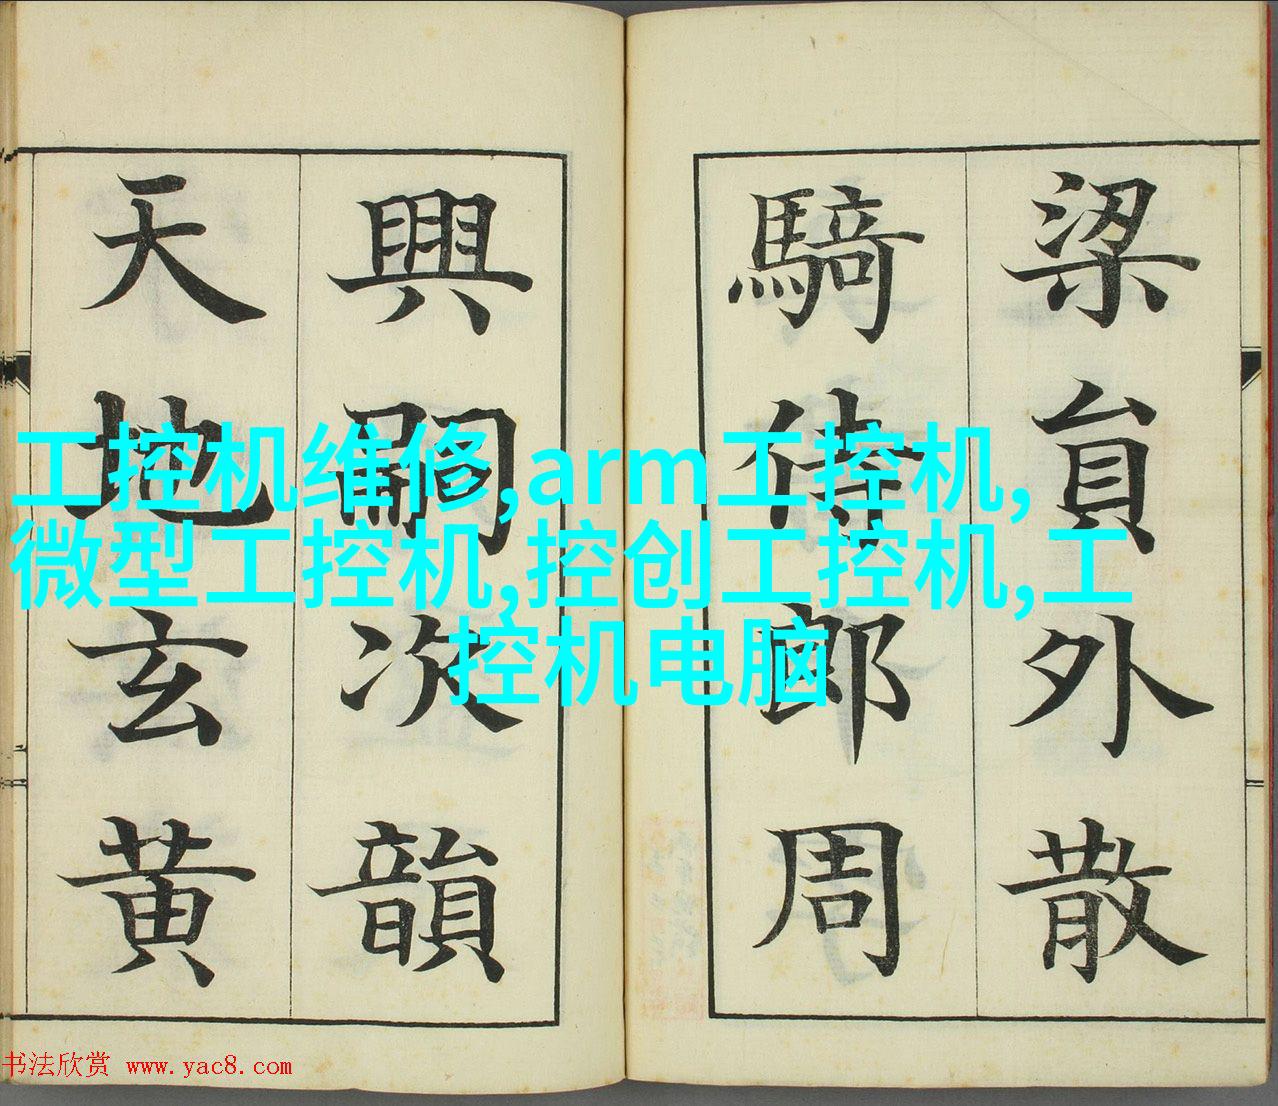 梁員外散
騎侍郎周
興嗣次韻
天地玄黄
工控机维修,arm工控机,
微型工控机,控创工控机,工
控机电脑
书法欣赏 www.yac8.com